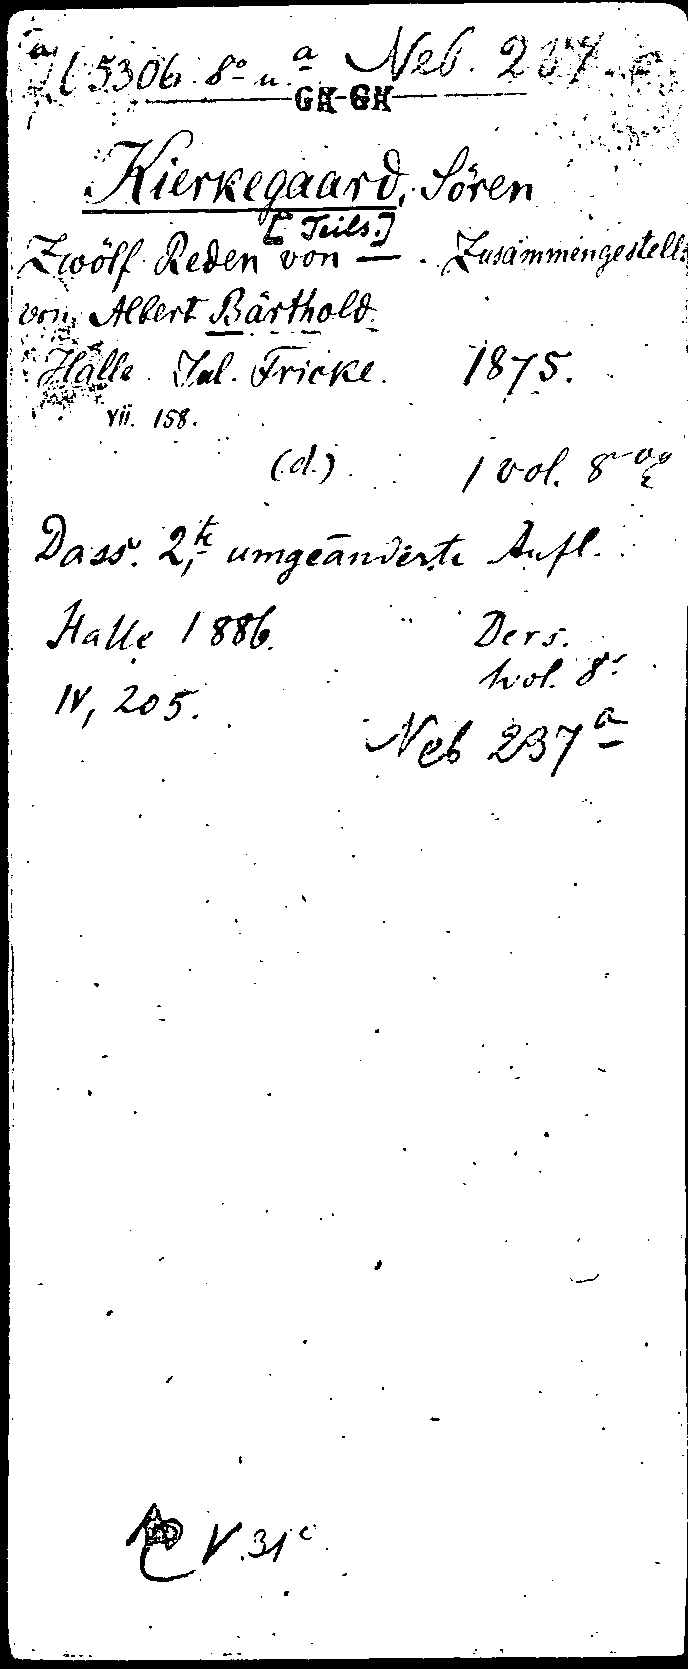 5306 8° u. a Neb. 237.
GH-GH
Kierkegaard, Sören
[Teils.]
Zwölf Reden von — . Zusammengestellt
von Albert Bärthold.
Halle. Jul. Fricke. 1875.
VII. 158.
(d.) 1 vol. 8°
Dass. 2te umgeänderte Aufl.
Halle 1886. Ders.
1 vol. 8°
IV, 205.
Neb 237 a
V. 31 c